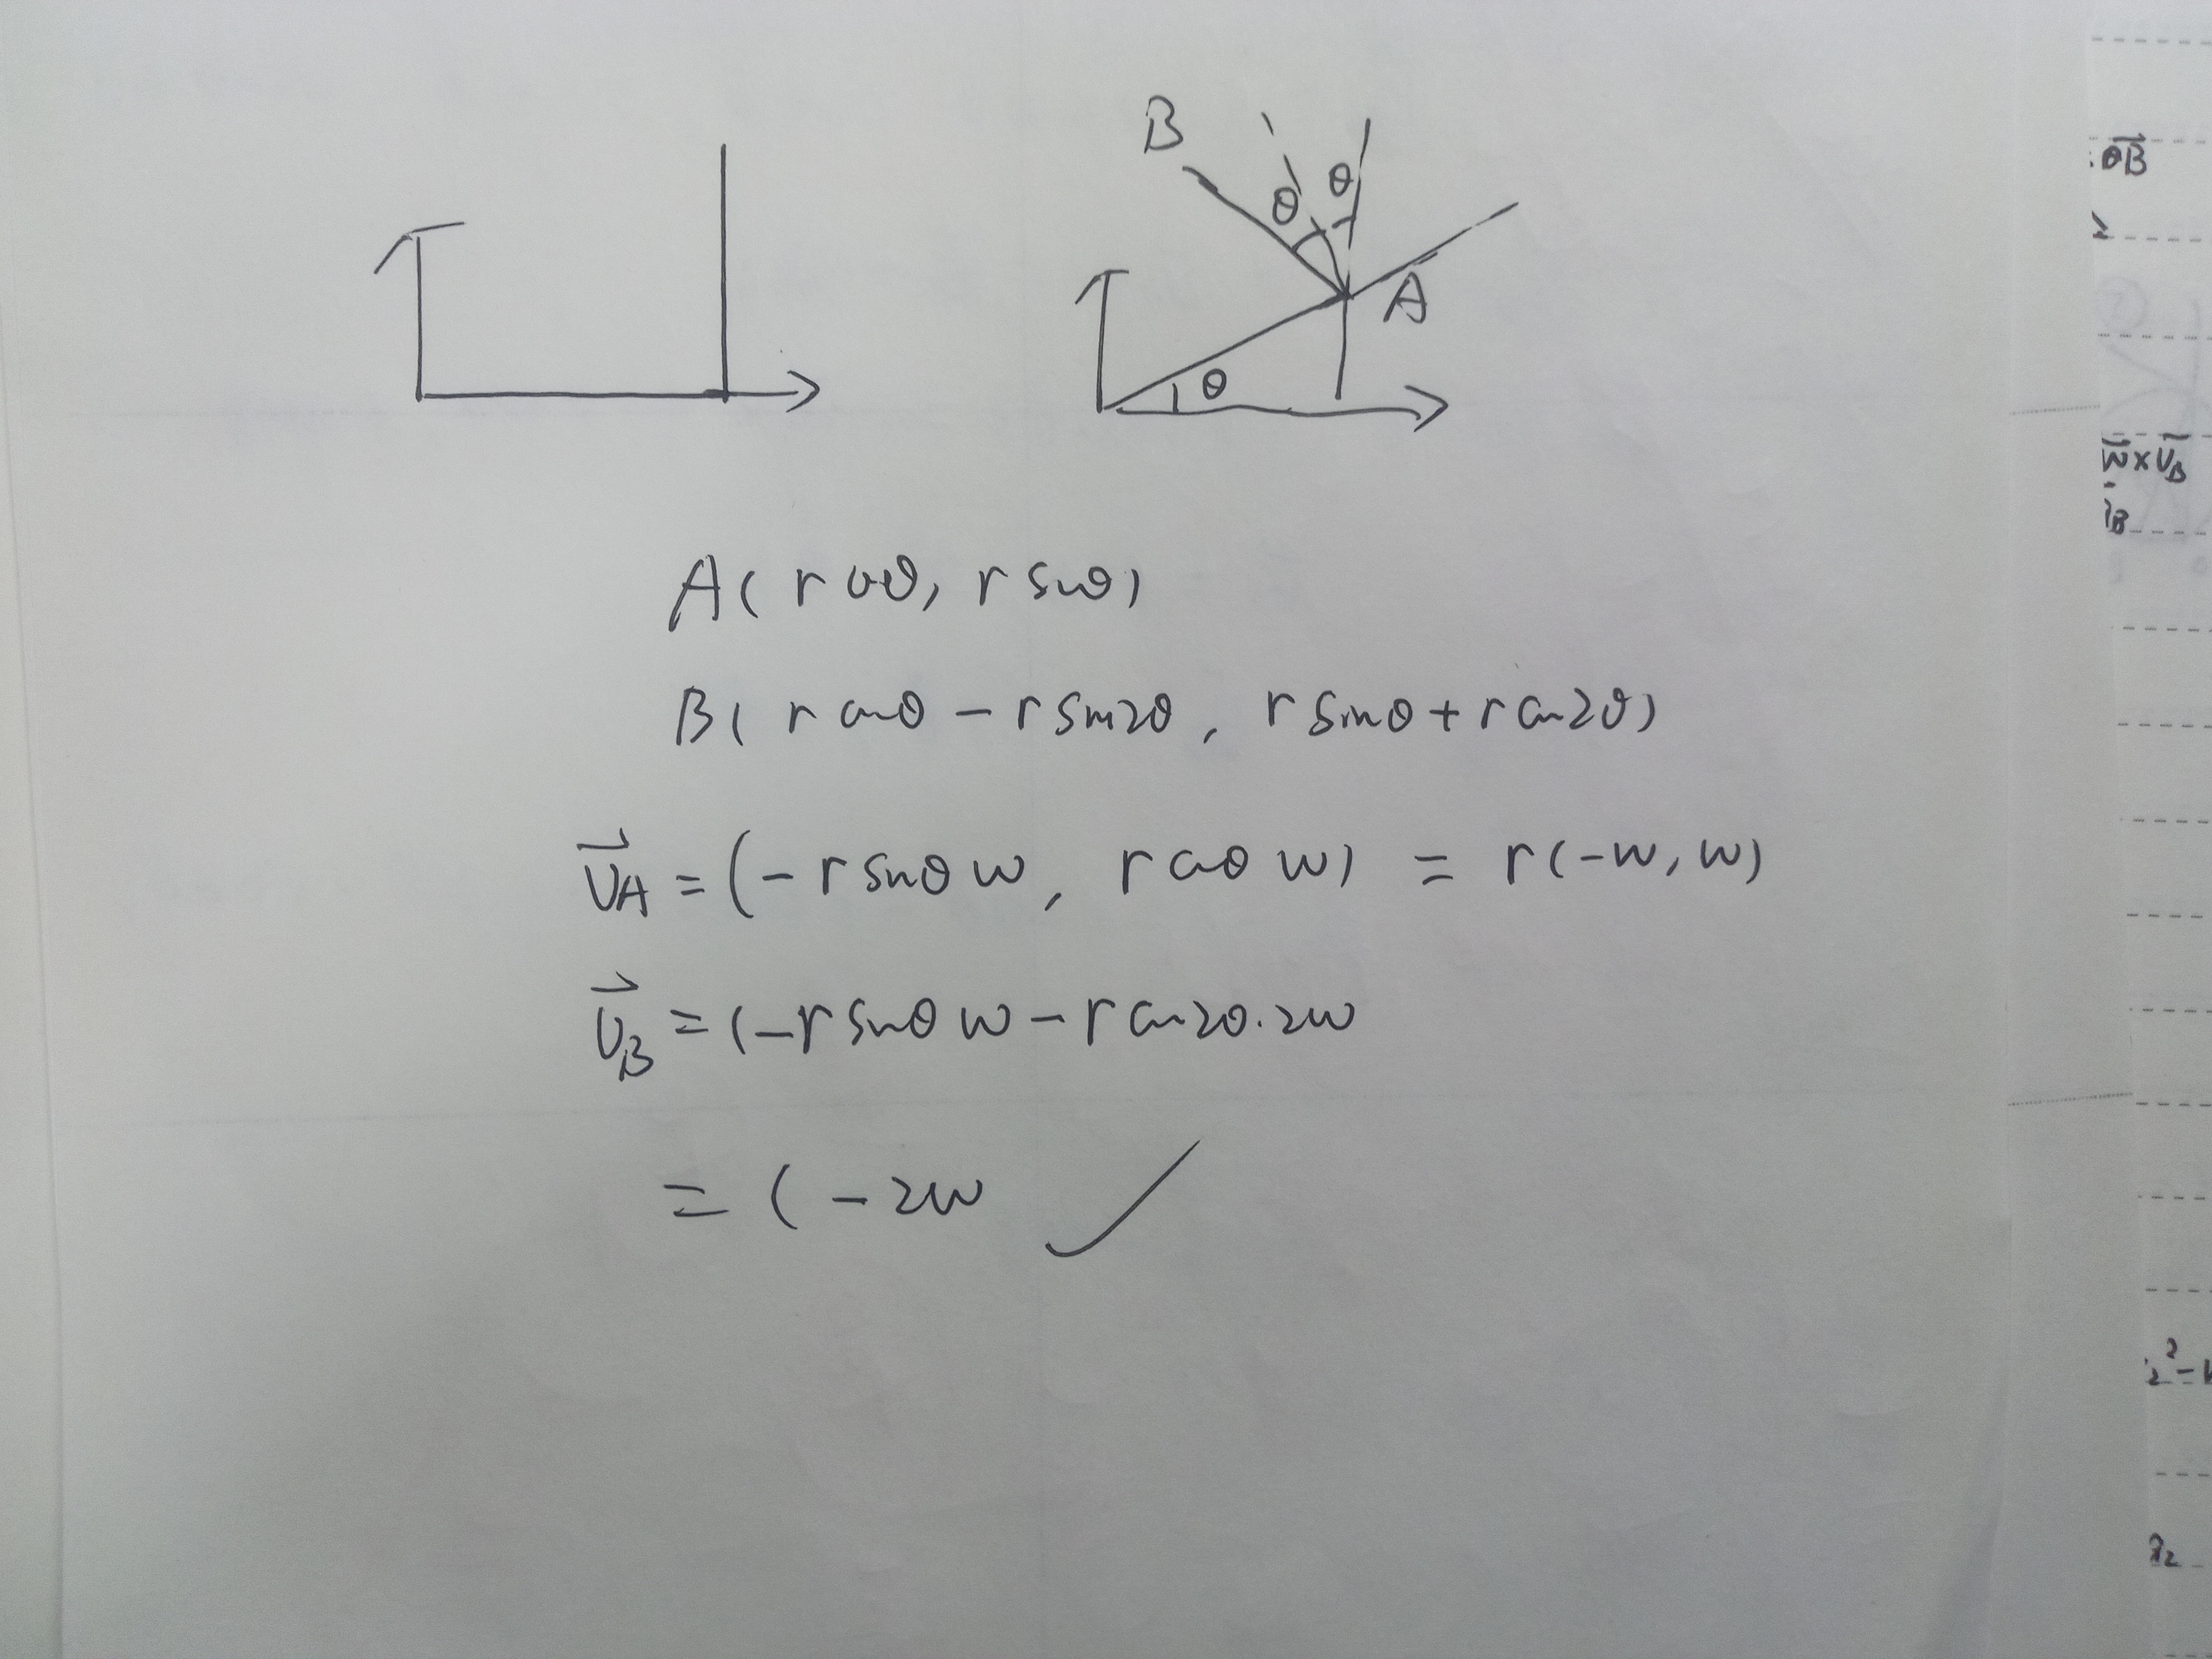 B
θ
θ
A
θ
A( r cosθ, r sinθ)
B( r cosθ - r sin2θ, r sinθ + r cos2θ)
v⃗A = (- r sinθ w, r cosθ w) = r(-w, w)
v⃗B = (- r sinθ w - r cos2θ·2w
= ( - 2w ✓
θB⃗
w⃗ × v⃗B